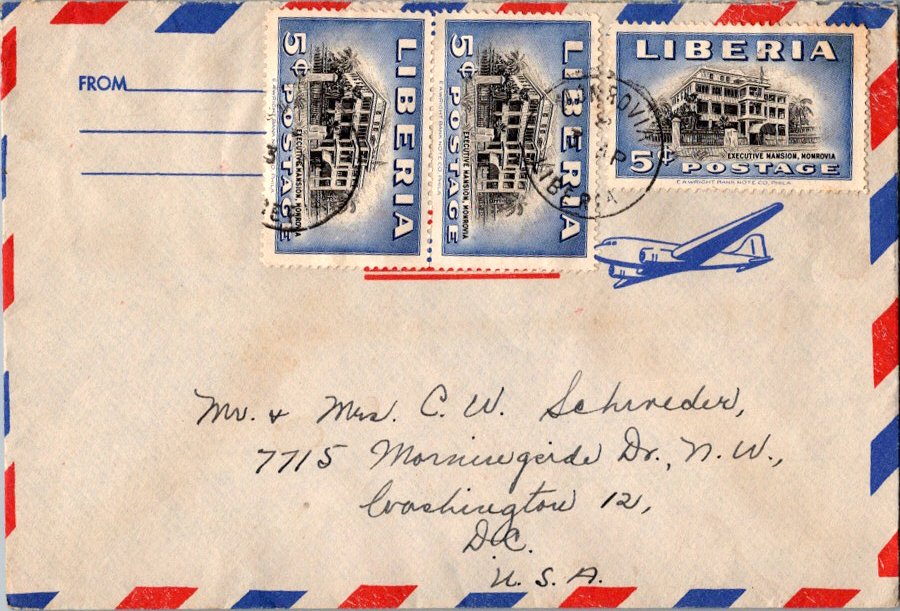 FROM
LIBERIA
5¢ POSTAGE
EXECUTIVE MANSION, MONROVIA
LIBERIA
5¢ POSTAGE
EXECUTIVE MANSION, MONROVIA
E.A. WRIGHT BANK NOTE CO. PHILA.
LIBERIA
EXECUTIVE MANSION, MONROVIA
5¢ POSTAGE
E.A. WRIGHT BANK NOTE CO., PHILA.
MONROVIA
LIBERIA
Mr. & Mrs. C. W. Schroeder,
7715 Morningside Dr., N. W.,
Washington 12,
D.C.
U. S. A.